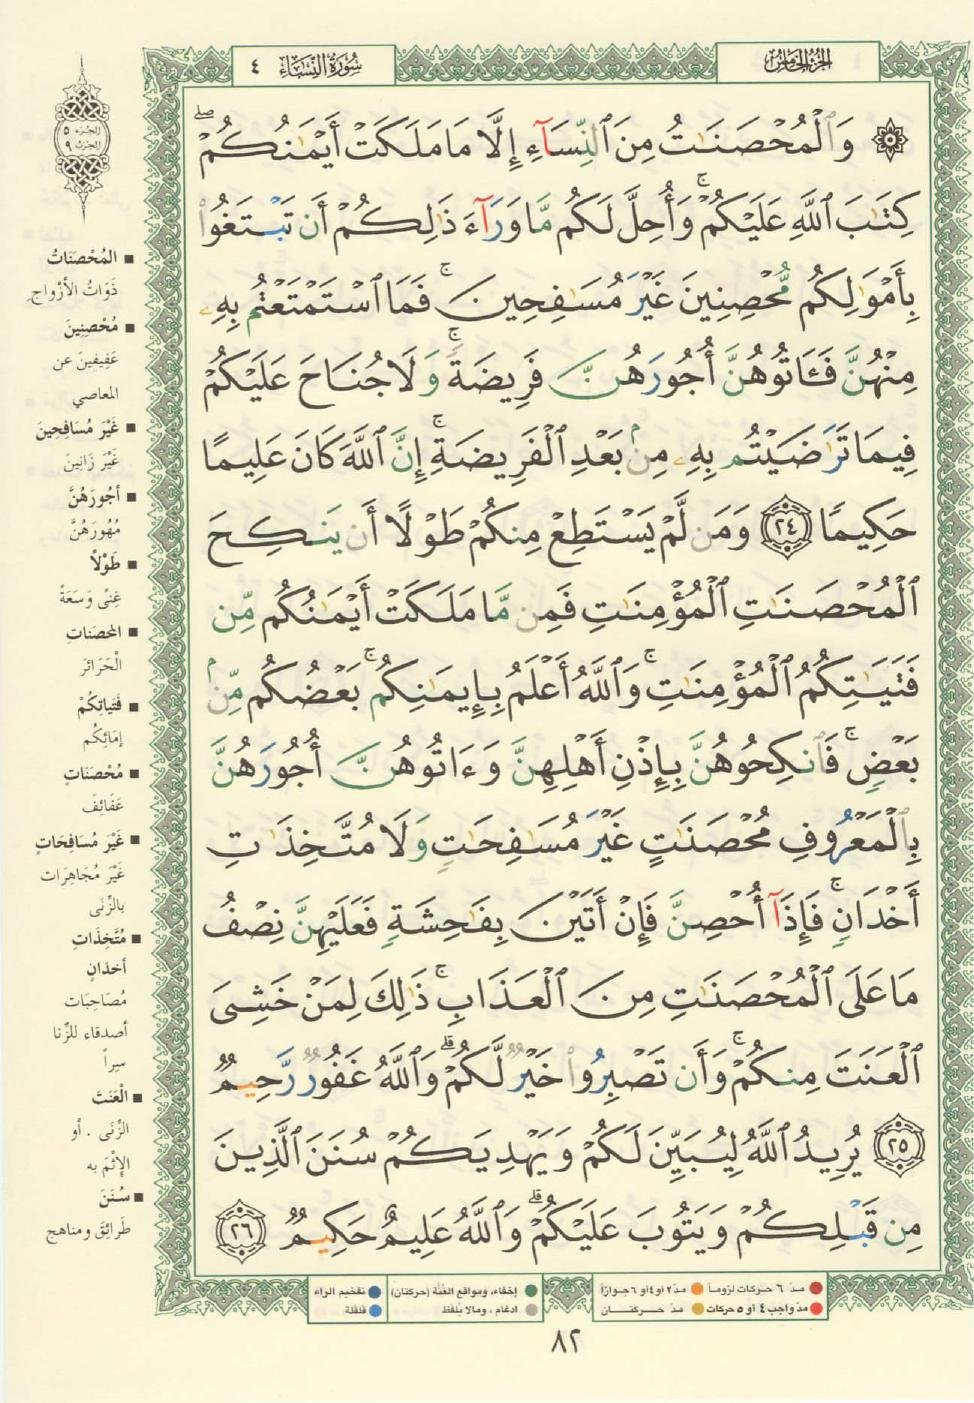 الجزء الخامس
سورة النساء ٤
الجزء ٥
الحزب ٩
۞ وَٱلْمُحْصَنَٰتُ مِنَ ٱلنِّسَآءِ إِلَّا مَا مَلَكَتْ أَيْمَٰنُكُمْ ۖ
كِتَٰبَ ٱللَّهِ عَلَيْكُمْ ۚ وَأُحِلَّ لَكُم مَّا وَرَآءَ ذَٰلِكُمْ أَن تَبْتَغُوا۟
بِأَمْوَٰلِكُم مُّحْصِنِينَ غَيْرَ مُسَٰفِحِينَ ۚ فَمَا ٱسْتَمْتَعْتُم بِهِۦ
مِنْهُنَّ فَـَٔاتُوهُنَّ أُجُورَهُنَّ فَرِيضَةً ۚ وَلَا جُنَاحَ عَلَيْكُمْ
فِيمَا تَرَٰضَيْتُم بِهِۦ مِنۢ بَعْدِ ٱلْفَرِيضَةِ ۚ إِنَّ ٱللَّهَ كَانَ عَلِيمًا
حَكِيمًا ٢٤ وَمَن لَّمْ يَسْتَطِعْ مِنكُمْ طَوْلًا أَن يَنكِحَ
ٱلْمُحْصَنَٰتِ ٱلْمُؤْمِنَٰتِ فَمِن مَّا مَلَكَتْ أَيْمَٰنُكُم مِّن
فَتَيَٰتِكُمُ ٱلْمُؤْمِنَٰتِ ۚ وَٱللَّهُ أَعْلَمُ بِإِيمَٰنِكُم ۚ بَعْضُكُم مِّنۢ
بَعْضٍ ۚ فَٱنكِحُوهُنَّ بِإِذْنِ أَهْلِهِنَّ وَءَاتُوهُنَّ أُجُورَهُنَّ
بِٱلْمَعْرُوفِ مُحْصَنَٰتٍ غَيْرَ مُسَٰفِحَٰتٍ وَلَا مُتَّخِذَٰتِ
أَخْدَانٍ ۚ فَإِذَآ أُحْصِنَّ فَإِنْ أَتَيْنَ بِفَٰحِشَةٍ فَعَلَيْهِنَّ نِصْفُ
مَا عَلَى ٱلْمُحْصَنَٰتِ مِنَ ٱلْعَذَابِ ۚ ذَٰلِكَ لِمَنْ خَشِىَ
ٱلْعَنَتَ مِنكُمْ ۚ وَأَن تَصْبِرُوا۟ خَيْرٌ لَّكُمْ ۗ وَٱللَّهُ غَفُورٌ رَّحِيمٌ
٢٥ يُرِيدُ ٱللَّهُ لِيُبَيِّنَ لَكُمْ وَيَهْدِيَكُمْ سُنَنَ ٱلَّذِينَ
مِن قَبْلِكُمْ وَيَتُوبَ عَلَيْكُمْ ۗ وَٱللَّهُ عَلِيمٌ حَكِيمٌ ٢٦
■ المُحْصَنَاتُ
ذَوَاتُ الأَزْوَاجِ
■ مُحْصِنِينَ
عَفِيفِينَ عن
المعاصي
■ غَيْرَ مُسَافِحِينَ
غَيْرَ زَانِينَ
■ أُجُورَهُنَّ
مُهُورَهُنَّ
■ طَوْلاً
غِنًى وَسَعَةً
■ المحصَنَاتِ
الْحَرَائرَ
■ فَتَيَاتِكُمْ
إِمَائِكُم
■ مُحْصَنَاتٍ
عَفَائِفَ
■ غَيْرَ مُسَافِحَاتٍ
غَيْرَ مُجَاهِرَات
بالزِّنَى
■ مُتَّخِذَاتِ
أخدَانٍ
مُصَاحِبَات
أصدقاء للزِّنا
سِراً
■ الْعَنَتَ
الزِّنَى . أو
الإِثْمَ به
■ سُنَنَ
طَرَائِقَ ومناهج
مدّ ٦ حركات لزوماً مدّ ٢ او ٤ او ٦ جوازاً
مدّ واجب ٤ أو ٥ حركات مدّ حركتان
إخفاء، ومواقع الغُنَّة (حركتان) تفخيم الراء
ادغام ، ومالا يُلفَظ قلقلة
٨٢